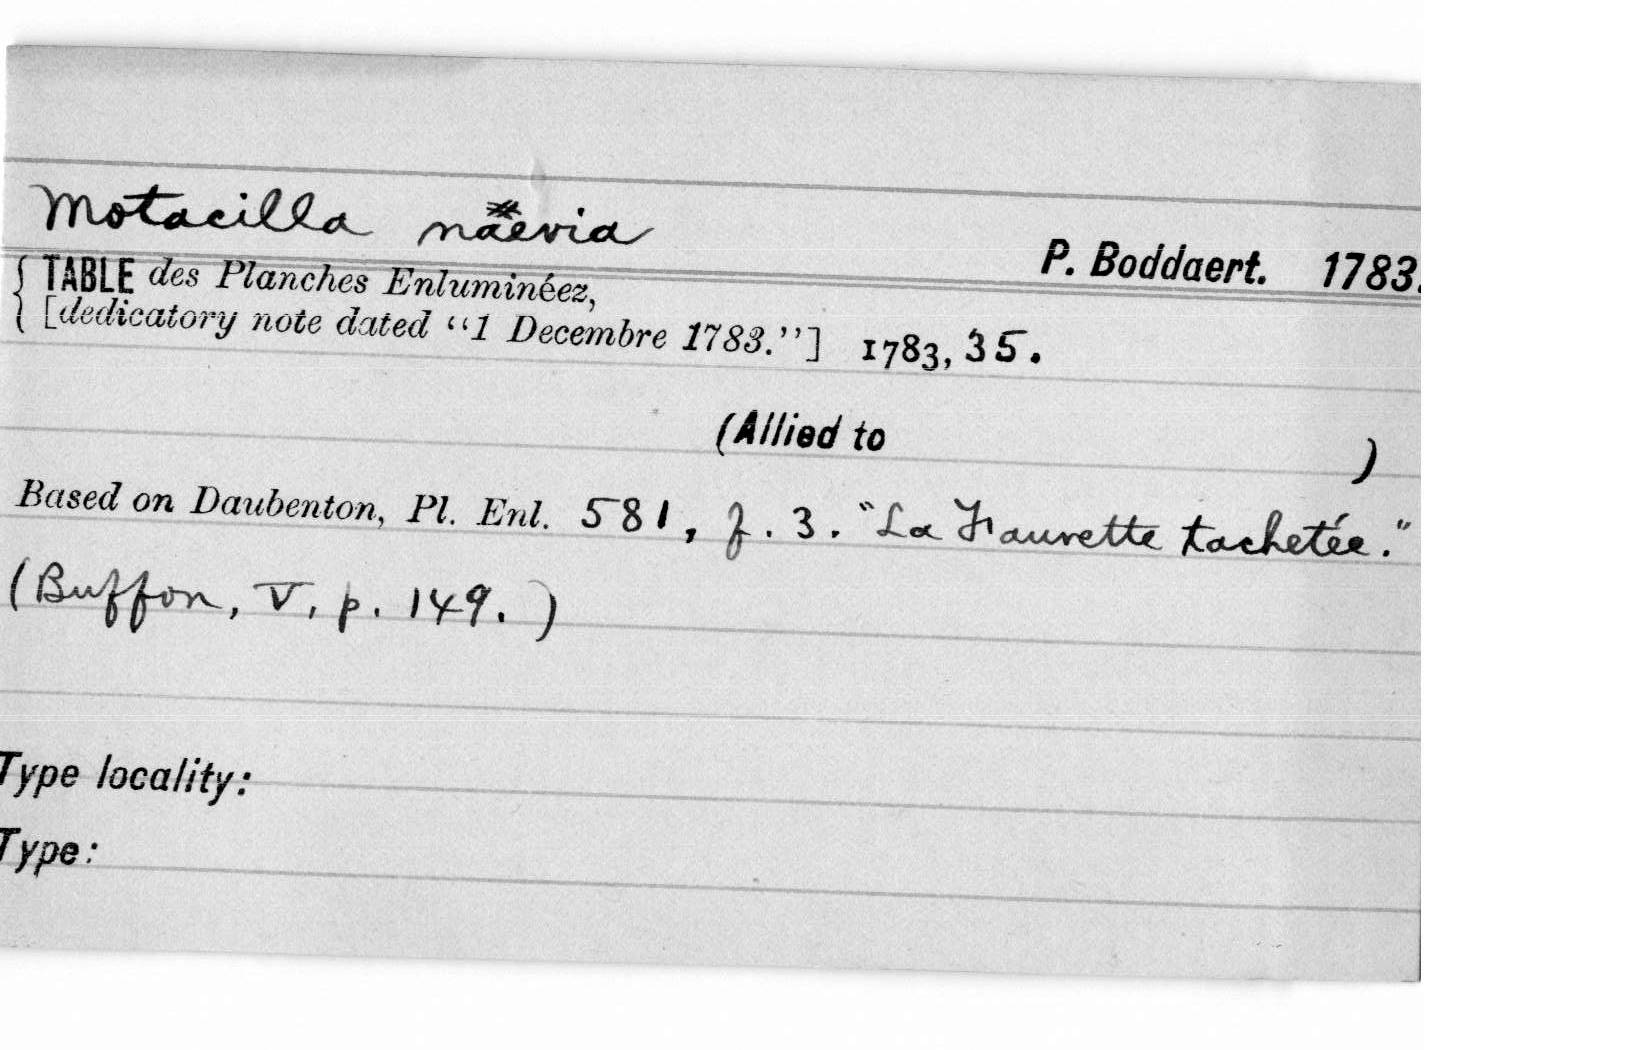 Motacilla naevia
P. Boddaert. 1783.
{ TABLE des Planches Enluminéez,
[dedicatory note dated “1 Decembre 1783.”] 1783, 35.
(Allied to )
Based on Daubenton, Pl. Enl. 581, f. 3. "La Fauvette tachetée."
(Buffon, V, p. 149.)
Type locality:
Type: